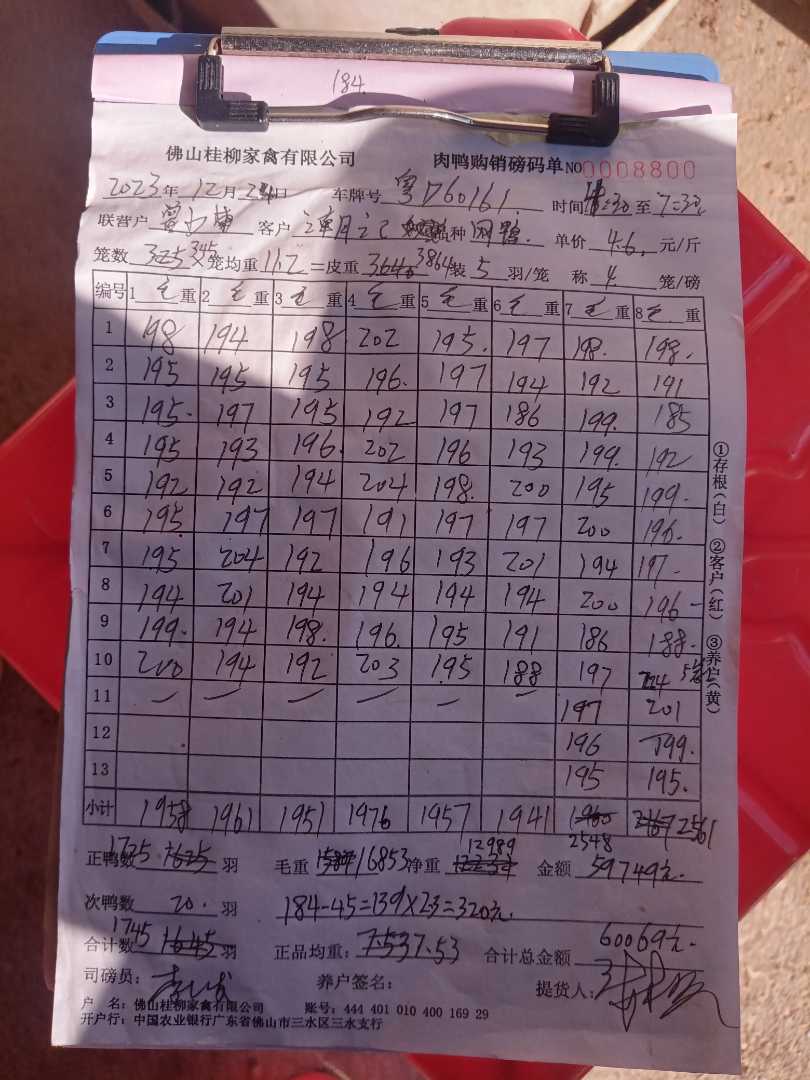 184.
佛山桂柳家禽有限公司 肉鸭购销磅码单 NO 0008800
2023年 12月 24日 车牌号 粤D60161 时间 至 7:30
联营户 客户 品种 单价 4.6. 元/斤
笼数 325 345 × 笼均重 11.2 = 皮重 3640 3864 装 5 羽/笼 称 4 笼/磅
编号 1 毛 重 2 毛 重 3 毛 重 4 毛 重 5 毛 重 6 毛 重 7 毛 重 8 毛 重
1 198 194 198 202 195. 197 198. 198.
2 195 195 195 196. 197 194 192 191
3 195. 197 195 192 197 186 199. 185
4 195 193 196. 202 196 193 199. 192
5 192 192 194 204 198. 200 195 199.
6 195 197 197 191 197 197 200 196.
7 195 204 192 196 193 201 194 197-
8 194 201 194 194 194 194 200 196-
9 199. 194 198. 196. 195 191 186 188.
10 200 194 192 203 195 188 197 224
11 — — — — — — 197 201
12 196 199.
13 195 195.
小计 1958 1961 1951 1976 1957 1941 1960 2548 2167 2561
正鸭数 1725 1625 羽 毛重 16853 净重 12989 金额 59749元.
次鸭数 20. 羽 184-45=139×2.3=320元.
合计数 1745 1645 羽 正品均重: 7.53 7.53 合计总金额 60069元.
司磅员: 养户签名: 提货人:
户 名: 佛山桂柳家禽有限公司 账号: 444 401 010 400 169 29
开户行: 中国农业银行广东省佛山市三水区三水支行
①存根(白) ②客户(红) ③养户(黄)